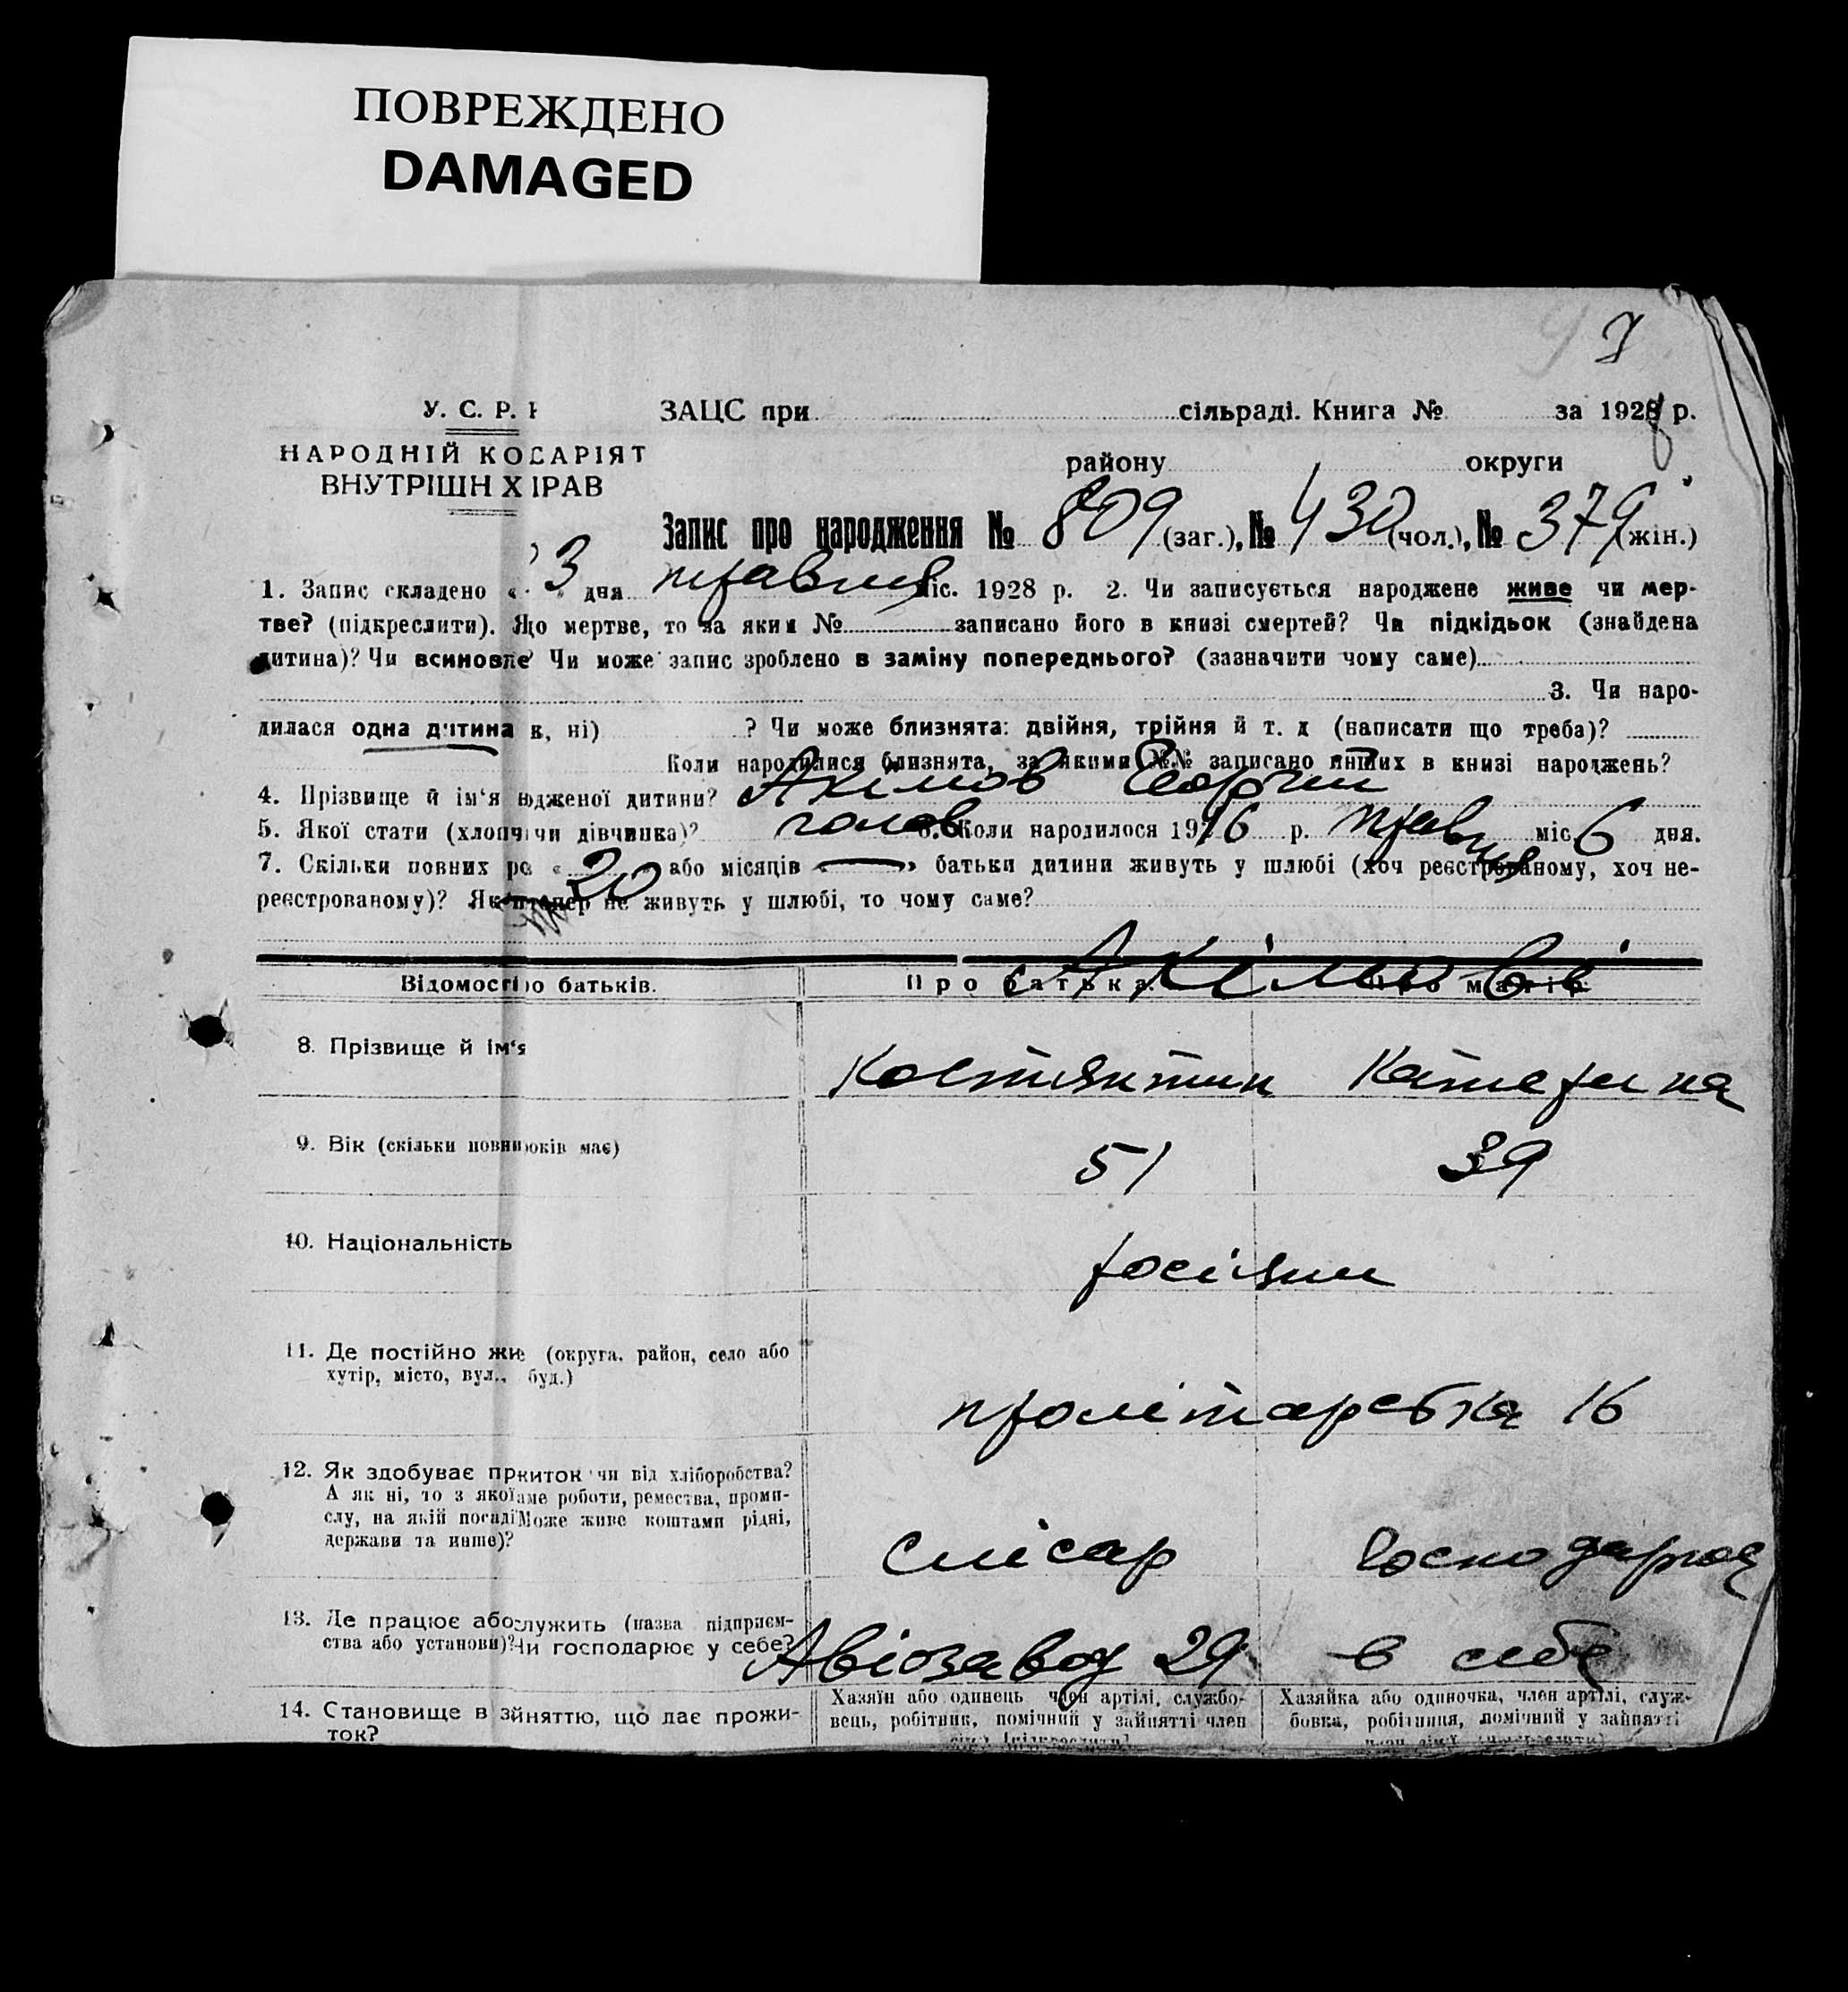 ПОВРЕЖДЕНО
DAMAGED
У. С. Р. Р
ЗАЦС при сільраді. Книга № за 1928 р.
НАРОДНІЙ КО САРІЯТ
району округи
ВНУТРІШН Х ПРАВ
Запис про народження № 809 (заг.), № 430 (чол.), № 379 (жін.)
1. Запис складено « 3 » дня травня міс. 1928 р. 2. Чи записується народжене живе чи мер-
тве? (підкреслити). Що мертве, то за яким № записано його в книзі смертей? Чи підкідьок (знайдена
дитина)? Чи всиновле Чи може запис зроблено в заміну попереднього? (зазначити чому саме)
3. Чи наро-
дилася одна дитина к, ні) ? Чи може близнята: двійня, трійня й т. д (написати що треба)?
Коли народилися близнята, за якими №№ записано инших в книзі народжень?
4. Прізвище й ім‘я юдженої дитини? Акімов Георгій
5. Якої стати (хлопч чи дівчинка)? чолов 6. Коли народилося 1916 р. травня міс. 6 дня.
7. Скільки повних ро « 20 » або місяців « — » батьки дитини живуть у шлюбі (хоч реєстрованому, хоч не-
реєстрованому)? Як тепер не живуть у шлюбі, то чому саме?
Акімови
Відомості ро батьків. Про батька Про матір
8. Прізвище й ім‘я Костянтин Катерина
9. Вік (скільки повни років має) 51 39
10. Національність росіяни
11. Де постійно жи (округа, район, село або
хутір, місто, вул., буд.)
пролітарська 16
12. Як здобуває пр житок чи від хліборобства?
А як ні, то з якої саме роботи, ремества, проми-
слу, на якій посаді Може живе коштами рідні,
держави та инше)?
слісар господарюя
13. Де працює або служить (назва підприєм-
ства або установи)? Чи господарює у себе?
Авіозавод 29 в себе
14. Становище в зайняттю, що дає прожи-
ток?
Хазяїн або одинець член артілі, службо-
вець, робітник, помічний у зайнятті член
Хазяйка або одиночка, член артілі, служ-
бовка, робітниця, помічний у зайнятті